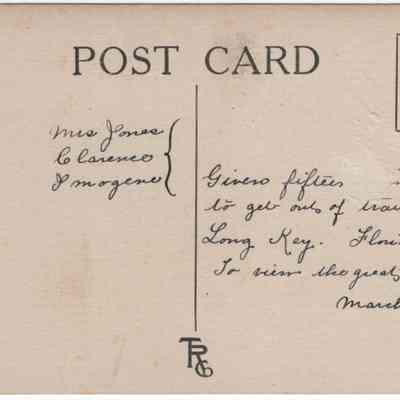 POST CARD
Mrs Jones
Clarence
Imogene
Given fifteen
to get out of
Long Key. Flori
To view the great
March
TRG